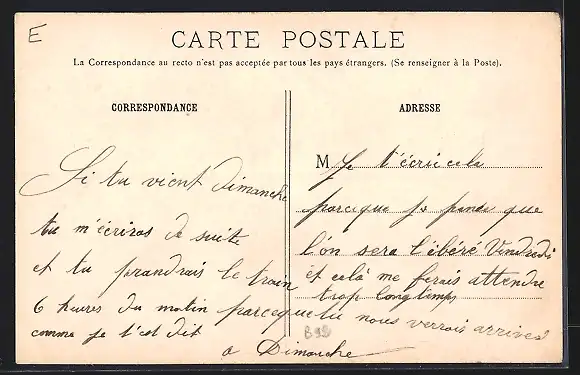 E
CARTE POSTALE
La Correspondance au recto n'est pas acceptée par tous les pays étrangers. (Se renseigner à la Poste).
CORRESPONDANCE
Si tu vient dimanche
tu m'écriras de suite
et tu prandrais le train
6 heures du matin parceque tu nous verrais arrived
comme je t'est dit
a Dimanche
ADRESSE
M Je t'écrie cela
parceque je pense que
l'on sera libéré Vendredi
et celà me ferais attendre
trop longtemps
B99